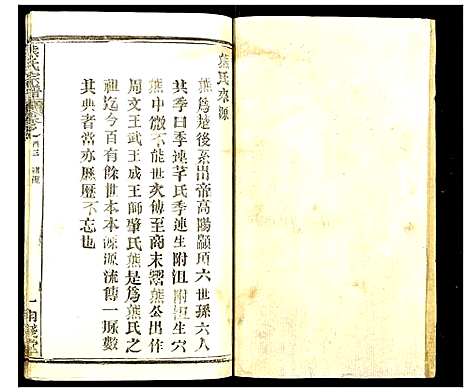 熊氏來源
熊爲楚後系出帝高陽顓頊六世孫六人
其季曰季連芈氏季連生附沮附沮生穴
熊中微不能世亥傳至商末鬻熊公出作
周文王武王成王師肇氏熊是爲熊氏之
祖迄今百有餘世本本源源流傳一脈數
其典者當亦歷歷不忘也
熊氏宗譜
卷之